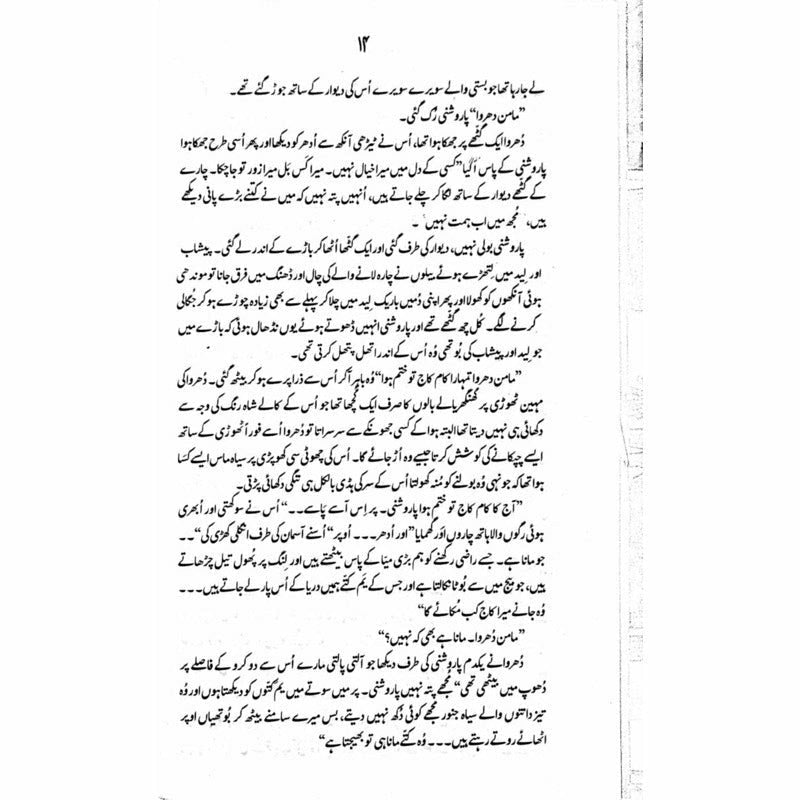 ۱۴
لے جا رہا تھا جو بستی والے سویرے سویرے اُس کی دیوار کے ساتھ جوڑ گئے تھے۔
”مامن دھروا“ پاروشنی رُک گئی۔
دُھروا ایک گٹھے پر جھکا ہوا تھا، اُس نے ٹیڑھی آنکھ سے اُدھر کو دیکھا اور پھر اُسی طرح جھکا ہوا
پاروشنی کے پاس آ گیا ”کسی کے دل میں میرا خیال نہیں۔ میرا کَس بَل میرا زور تو جا چکا۔ چارے
کے گٹھے دیوار کے ساتھ لگا کر چلے جاتے ہیں، اُنہیں پتہ نہیں کہ میں نے کتنے بڑے پانی دیکھے
ہیں، مُجھ میں اب ہمت نہیں“۔
پاروشنی بولی نہیں، دیوار کی طرف گئی اور ایک گٹھا اُٹھا کر باڑے کے اندر لے گئی۔ پیشاب
اور لید میں لِتھڑے ہوئے بیلوں نے چارہ لانے والے کی چال اور ڈھنگ میں فرق جانا تو موندھی
ہوئی آنکھوں کو کھولا اور پھر اپنی دُمیں باریک لید میں چلا کر پہلے سے بھی زیادہ چوڑے ہو کر جُگالی
کرنے لگے۔ کُل چھ گٹھے تھے اور پاروشنی انہیں ڈھوتے ہوئے یوں نڈھال ہوئی کہ باڑے میں
جو لید اور پیشاب کی بُو تھی وُہ اُس کے اندر اتھل پتھل کرتی تھی۔
”مامن دھروا تمہارا کام کاج تو ختم ہوا“ وُہ باہر آ کر اُس سے ذرا پرے ہو کر بیٹھ گئی۔ دُھروا کی
مہین ٹھوڑی پر گھُنگھریالے بالوں کا صرف ایک گُچھا تھا جو اُس کے کالے شاہ رنگ کی وجہ سے
دکھائی ہی نہیں دیتا تھا البتہ ہوا کے کسی جھونکے سے سرسراتا تو دُھروا اُسے فوراً ٹھوڑی کے ساتھ
ایسے چپکانے کی کوشش کرتا جیسے وہ اُڑ جائے گا۔ اُس کی چھوٹی سی کھوپڑی پر سیاہ ماس ایسے کَسا
ہوا تھا کہ جونہی وُہ بولنے کو مُنہ کھولتا اُس کے سر کی ہڈی بالکل ہی ننگی دکھائی پڑتی۔
”آج کا کام کاج تو ختم ہوا پاروشنی۔ پر اِس آسے پاسے۔۔“ اُس نے سوکھتی اور اُبھری
ہوئی رگوں والا ہاتھ چاروں اَور گھمایا ”اور اُدھر۔۔۔ اُوپر“ اُسنے آسمان کی طرف انگلی کھڑی کی“۔۔
جو مانا ہے۔ جسے راضی رکھنے کو ہم بڑی میّا کے پاس بیٹھتے ہیں اور لنگ پر پُھول تیل چڑھاتے
ہیں، جو بیج میں سے بُوٹا نکالتا ہے اور جس کے یَم کُتّے ہمیں دریا کے اُس پار لے جاتے ہیں۔۔۔
وُہ جانے میرا کاج کب مُکائے گا“
”مامن دُھروا۔ مانا ہے بھی کہ نہیں؟“
دُھروا نے یکدم پاروشنی کی طرف دیکھا جو آلتی پالتی مارے اُس سے دو کرو کے فاصلے پر
دُھوپ میں بیٹھی تھی ”مُجھے پتہ نہیں پاروشنی۔ پر میں سوتے میں یم کُتّوں کو دیکھتا ہوں اور وُہ
تیز دانتوں والے سیاہ جنور مُجھے کوئی دُکھ نہیں دیتے، بس میرے سامنے بیٹھ کر بُوتھیاں اوپر
اٹھائے روتے رہتے ہیں۔۔۔ وُہ کتّے مانا ہی تو بھیجتا ہے“